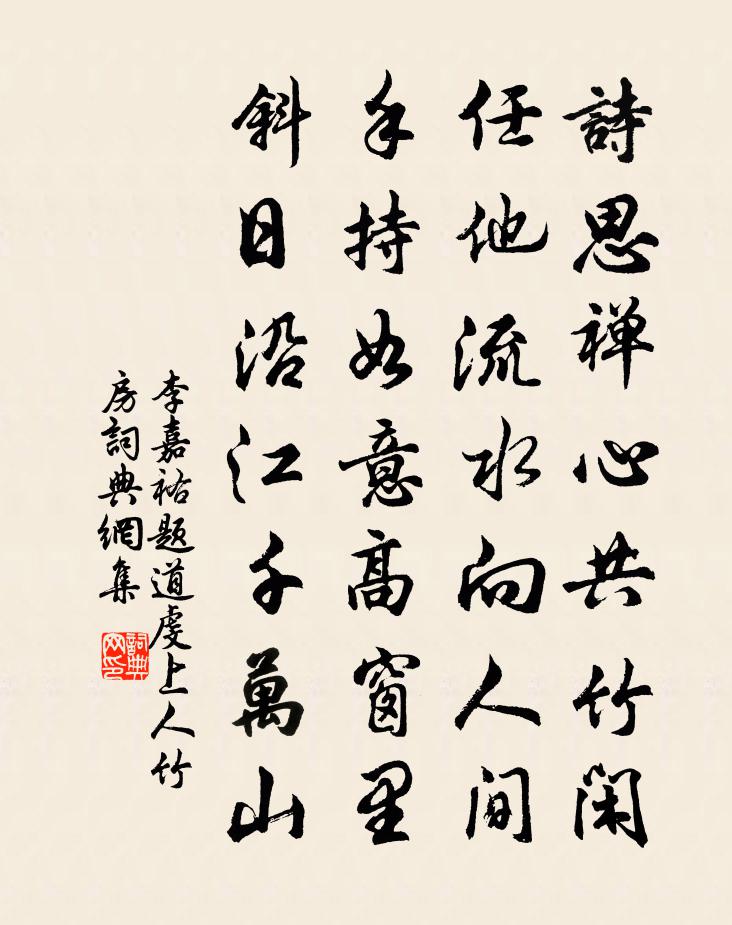 詩思禅心共竹閑
任他流水向人間
手持如意高窗里
斜日沿江千萬山
李嘉祐题道虔上人竹
房詞典網集
詞典
网印